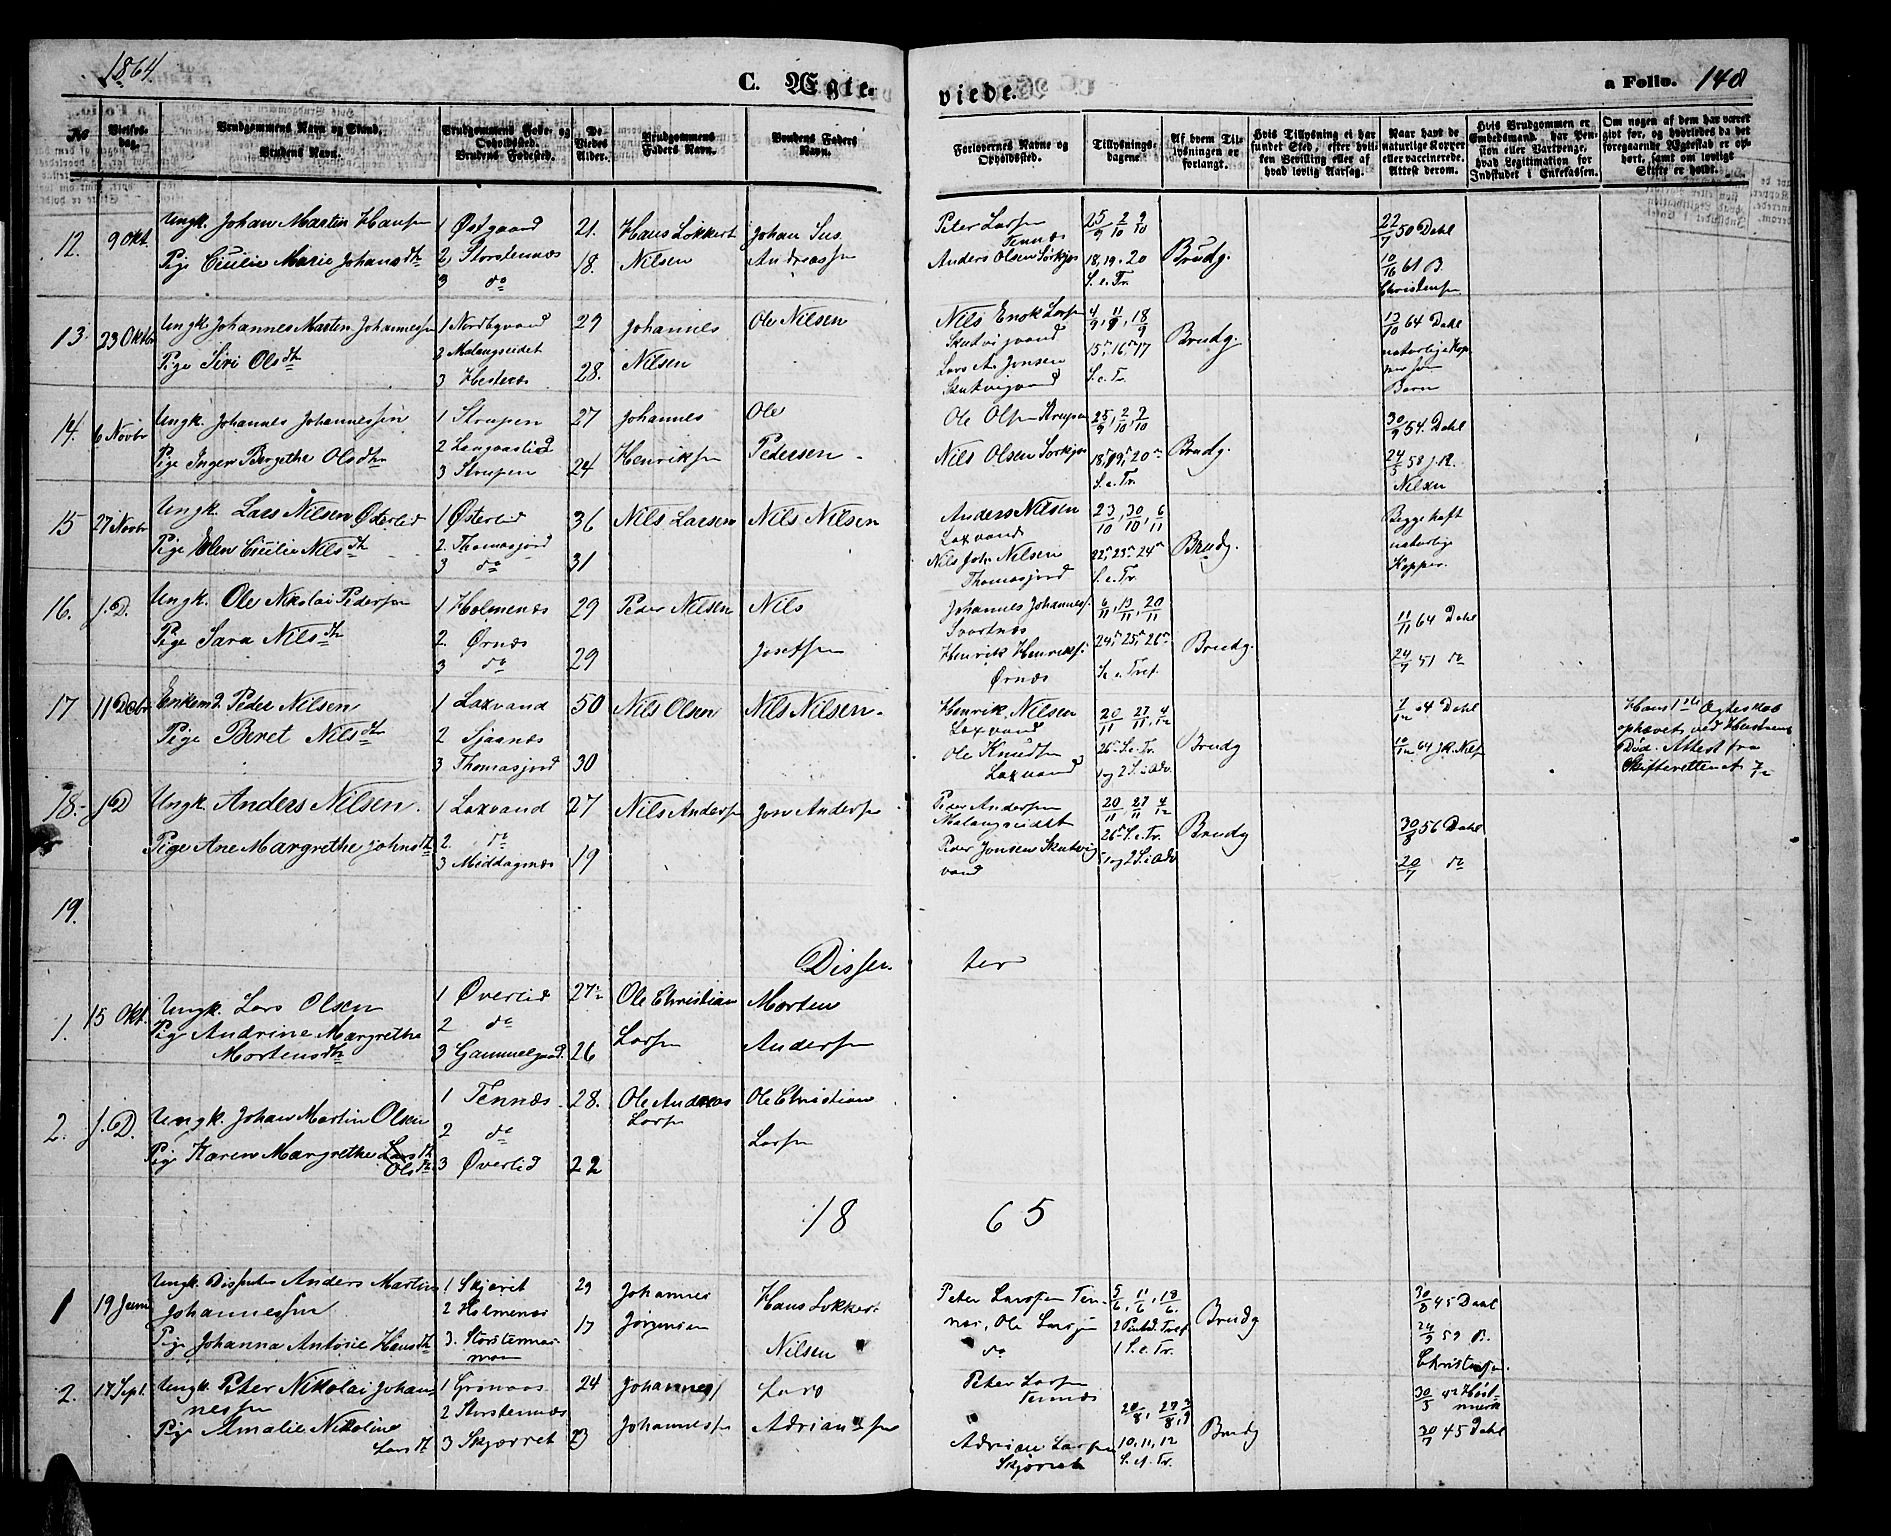 1864
C. Ægte-
viede.
a Folio. 148
No
Vielses-
dag.
Brudgommens Navn og Stand,
Brudens Navn.
Brudgommens Føde- og
Opholdssted.
Brudens Fødested.
De
Viedes
Alder.
Brudgommens
Faders Navn.
Brudens Faders
Navn.
Forlovernes Navne og
Opholdssted.
Tillysnings-
dagene.
Af hvem Til-
lysningen er
forlangt.
Hvis Tillysning ei har
fundet Sted, efter hvil-
ken Bevilling eller af
hvad lovlig Aarsag.
Naar havt de
naturlige Kopper
eller vaccinerede.
Attest derom.
Hvis Brudgommen er
Embedsmand, har Pen-
sion eller Vartpenge,
hvad Legitimation for
Indskudet i Enkekassen.
Om nogen af dem har været
gift før, og hvorledes da det
foregaaende Ægteskab er op-
hørt, samt om lovligt
Skifte er holdt.
12. 9 Okt. Ungk. Johan Martin Hansen 1 Østgaard 21. Hans Lökkert Johan Sus. Peter Larsen Tennæs 25/9 2/10 9/10 Brudg. 22/7 50 Dahl
Pige Cecilie Marie Johansdtr 2 Storstennæs 18. Nilsen Andreassen Anders Olsen Sørkjos 18, 19. 20 10/16 61 B.
3 do S. e. Tr. Christensen
13. 23 Oktbr Ungk. Johannes Martin Johannessen 1 Nordbyvand 29 Johannes Ole Nilsen Nils Enok Larsen 4/9, 11/9, 18/9 Brudg. 13/10 64 Dahl
Pige Siri Olsdtr 2 Malangseidet Nilsen Skutvigvand 15, 16, 17 naturlige Kop
3 Hestnæs 28. Lars A. Jensen S. e. Tr. per som
Skutvigvand Barn
14. 6 Novbr Ungk. Johannes Johannessen 1 Strupen 27 Johannes Ole Ole Olsen Strupen 25/9, 2/10, 9/10 Brudg. 30/9 54. Dahl
Pige Inger Bergethe Olsdtr 2 Langaaslid Henriksen Pedersen Nils Olsen Sørkjos 18, 19, 20 24/5 58 J.R.
3 Strupen 24 S. e. Tr. Nilsen
15 27 Novbr Ungk. Lars Nilsen Østerlid 1 Østerlid 36 Nils Larsen Nils Nilsen Anders Nilsen 23/10, 30/10, 6/11 Brudg. Begge haft
Pige Elen Cecilie Nilsdtr 2. Thomasjord Laxvand naturlige
3 do 31 Nils Joh. Nilsen 22, 23, 24 Kopper.
Thomasjord S. e. Tr.
16. s. D. Ungk. Ole Nikolai Pedersen 1 Holmenæs 29 Peder Nilsen Nils Johannes Johanness. 6/11, 13/11, 20/11 Brudg. 11/11 64 Dahl
Pige Sara Nilsdtr 2. Ørnæs Josefsen Svartnæs 24, 25, 26
3 do 29 Henrik Henriks. S. e. Tref. 24/7 51 do
Ørnæs
17 11 Decbr Enkemd. Peder Nilsen 1 Laxvand 50 Nils Olsen Nils Nilsen. Henrik Nilsen 20/11 27/11, 4/12 Brudg 7/12 64 Dahl Hans 1ste Ægteskab
Pige Beret Nilsdtr 2 Sjaanæs Laxvand ophævet ved Hustruens
3 Thomasjord 30 Ole Knudsen 26 S. e. Tr. 10/12 64 J.R. Nils. Død. Attest fra
Laxvand 1 og 2 S. i Adv. Skifteretten at 7/12
18. s D Ungk. Anders Nilsen 1 Laxvand 27 Nils Andersen Jon Andersen Peder Andersen 20/11 27/11 4/12 Brudg 30/8 56 Dahl
Pige Ane Margrethe Johnsdtr 2. do Malangseidet 26 S. e. Tr.
3 Middagsnæs 19 Peder Jonsen Skutvig 1 og 2 S. i Adv 20/7 do
vand
19.
Dissen ter
1. 15 Okt. Ungk. Lars Olsen 1 Øverlid 27 Ole Christian Morten
Pige Andrine Margrethe 2 do Larsen Andersen
Mortensdtr 3 Gammelgaard. 26
2. s. D. Ungk. Johan Martin Olsen 1 Tennæs 28. Ole Andreas Ole Christian
2 do Larsen Larsen
Pige Karen Margrethe Larsdtr 3 Øverlid 22
Olsdtr
18 65
1 19 Juni Ungk. Dissenter Anders Martin 1 Skjæret 29 Johannes Hans Løkkert Peter Larsen Ten- 5/6, 11/6, 18/6. Brudg 30/8 45 Dahl
Johannessen 2 Holmenæs Jørgensen næs, Ole Larsen 2 Pintsd. Tref 24/9 59 B.
Pige Johanna Antonie Hansdtr 3. Storstennæs 17 Nilsen do 1 S. e. Tr. Christensen.
2. 17 Sept. Ungk. Peter Nikolai Johan- 1 Grønaas 24 Johannes Lars Peter Larsen Brudg 30/5 42 Høst-
nessen 2 Storstennæs Tennæs 20/8, 27/8, 3/9 mark
Pige Amalie Nikoline 3 Skjærret 23 Johannessen Adriansen Adrian Larsen 10, 11, 12 20/7 45 Dahl
Larsdtr Skjæret S. e. Tr.